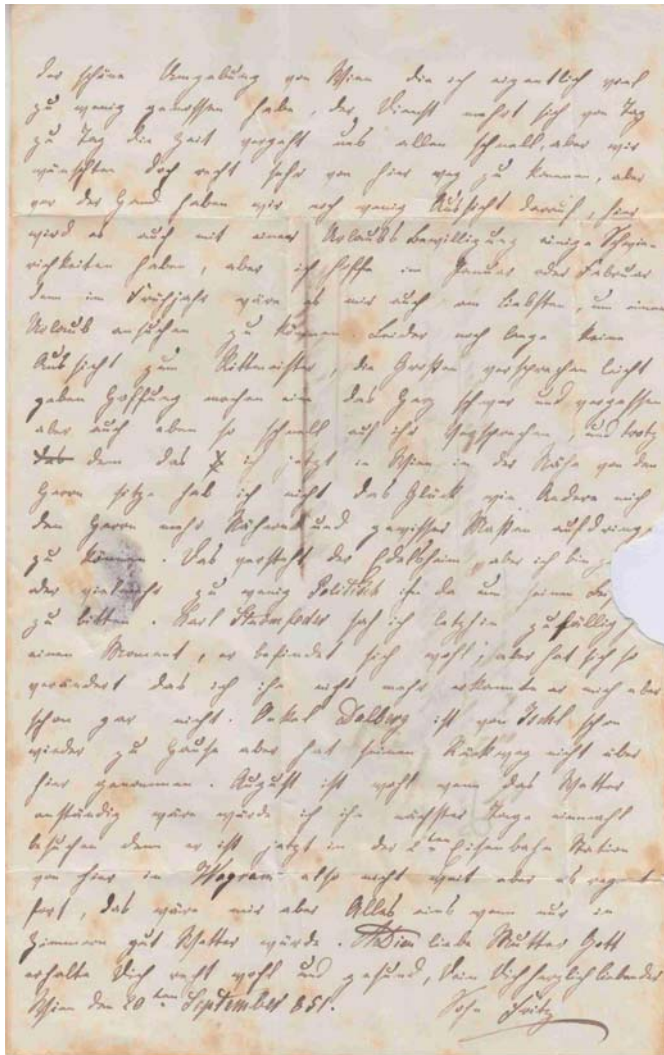 der schöne Umgebung von Wien die ich eigentlich viel
zu wenig genossen habe, der Dienst mehrt sich von Tag
zu Tag die Zeit vergeht uns allen schnell, aber wir
wünschten doch recht sehr von hier weg zu kommen, aber
vor der Hand haben wir noch wenig Aussicht darauf, hier
wird es auch mit einer Urlaubs bewilligung einige Schwie-
richkeiten haben, aber ich hoffe im Januar oder Februar
denn im Frühjahr wäre es mir auch am Liebsten, um einen
Urlaub ansuchen zu können. Leider noch lange keine
Aussicht zum Rittmeister, die Großen versprechen leicht
geben Hoffnung machen ein das Herz schwer und vergessen
aber auch eben so schnell auf ihr Versprechen, und trotz
dem das ich jetzt in Wien in der Nähe von den
Herrn sitze hab ich nicht das Glück wie Andere mich
den Herrn mehr Nähern und gewisser Maßen aufdringen
zu können. Das versteht der Edelsheim, aber ich bin
oder vielmehr zu wenig Politikus ihn da um seinen
zu bitten. Karl Stromfeder sah ich letzhin zufällig
einen Moment, er befindet sich wohl, aber hat sich so
verändert das ich ihn nicht mehr erkannte er mich aber
schon gar nicht. Onkel Dalberg ist von Ischl schon
wieder zu Hause aber hat seinen Rückweg nicht über
hier genommen. August ist wohl wenn das Wetter
anständig wäre würde ich ihn nächster Tage einmahl
besuchen denn er ist jetzt in der 2ten Eisenbahn Station
von hier in Wagram also nicht weit aber es regnet
fort, das wäre mir aber Alles eins wenn nur in
Zimmern gut Wetter würde. Adieu liebe Mutter Gott
erhalte Dich recht wohl und gesund, Dein Dich herzlich liebender
Wien den 20ten September 851. Sohn Fritz